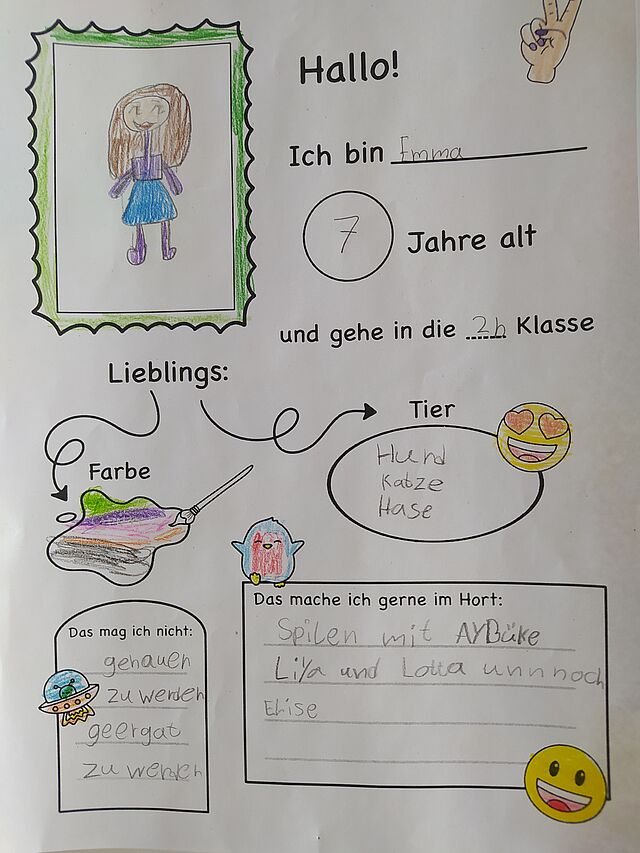 Hallo!
Ich bin Emma
7 Jahre alt
und gehe in die 2b Klasse
Lieblings:
Farbe
Tier
Hund
Katze
Hase
Das mag ich nicht:
gehauen
zu werden
geergat
zu werden
Das mache ich gerne im Hort:
Spilen mit AYBüke
Liya und Lotta unnnoch
Elise